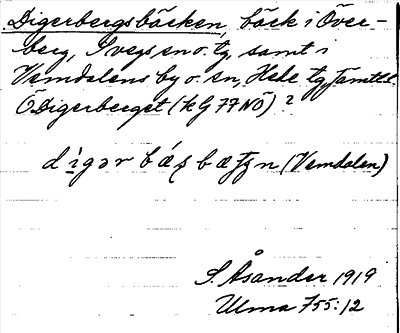 Digerbergsbäcken, bäck i Över-
berg, Svegs sn o. tg, samt i
Vemdalens by o. sn, Hede tg, Jämtl. l.
Ö Digerberget (kG 77 NÖ) ?
digər bærs bæ (Vemdalen)
S. Åsander 1919
Ulma 755:12